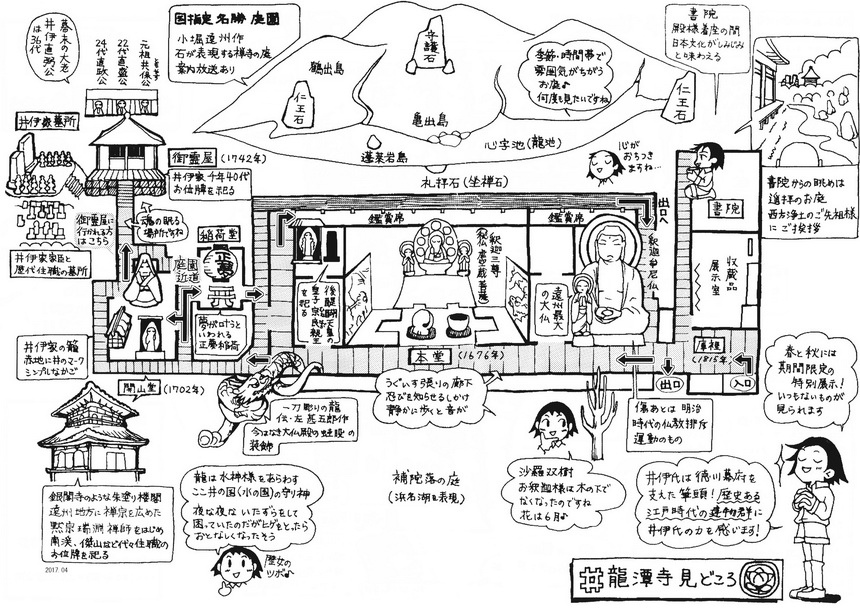 国指定名勝 庭園
小堀遠州作
石が表現する禅寺の庭
案内放送あり
幕末の大老
井伊直弼公
は36代
24代直政公
22代直盛公
元祖共保公
井伊家墓所
御霊屋 (1742年)
井伊家千年40代
お位牌を祀る
御霊屋に
行かれる方
はこちら
魂の眠る
場所ですね
井伊家家臣と
歴代住職の墓所
稲荷堂
庭園
近道
夢が叶うと
いわれる
正夢稲荷
井伊家の籠
赤地に井のマーク
シンプルなかご
開山堂 (1702年)
銀閣寺のような朱塗り楼閣
遠州地方に禅宗を広めた
黙宗瑞淵禅師をはじめ
南渓、傑山など代々住職の
お位牌を祀る
2017.04
守護石
鶴出島
仁王石
亀出島
仁王石
蓬莱岩島
心字池(龍池)
礼拝石(坐禅石)
季節・時間帯で
雰囲気がちがう
お庭♪
何度も見たいですね
心が
おちつき
ますね…
書院
殿様着座の間
日本文化がしみじみ
と味わえる
書院からの眺めは
遥拝のお庭
西方浄土のご先祖様
にご挨拶
鑑賞席
鑑賞席
出口へ
書院
収蔵品
展示室
後醍醐天皇の
皇子 宗良親王
を祀る
釈迦三尊
(秘仏 虚空蔵菩薩)
遠州最大
の大仏
釈迦牟尼仏
本堂 (1676年)
庫裡
(1815年)
出口
入口
うぐいす張りの廊下
忍びを知らせるしかけ
静かに歩くと音が
一刀彫りの龍
伝・左甚五郎作
今はなき大仏殿の
装飾
龍は水神様をあらわす
ここ井の国(水の国)の守り神
夜な夜ないたずらをして
困っていたのだがヒゲをとったら
おとなしくなったそう
歴女の
ツボ♪
補陀落の庭
(浜名湖を表現)
沙羅双樹
お釈迦様は木の下で
なくなったのですね
花は6月♪
傷あとは明治
時代の仏教排斥
運動のもの
春と秋には
期間限定の
特別展示!
いつもないものが
見られます
井伊氏は徳川幕府を
支えた筆頭!歴史ある
江戸時代の建物群に
井伊氏の力を感じます!
龍潭寺見どころ